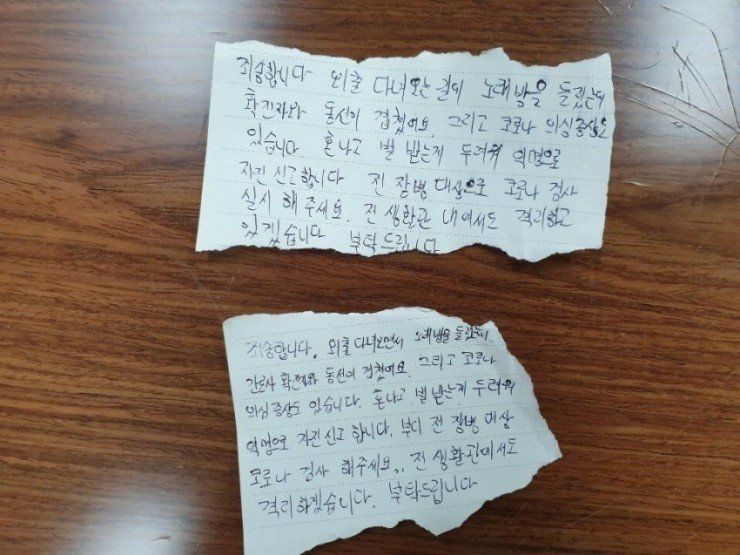 죄송합니다 외출 다녀오는길에 노래방을 들렸는데
확진자와 동선이 겹쳤어요. 그리고 코로나 의심증상도
있습니다 혼나고 벌 받는게 두려워 익명으로
자진 신고합니다 전 장병 대상으로 코로나 검사
실시 해주세요 전 생활관 내에서도 격리하고
있겠습니다 부탁드립니다
죄송합니다. 외출 다녀오면서 노래방을 들렸는데
간호사 확진자와 동선이 겹쳤어요. 그리고 코로나
의심증상도 있습니다. 혼나고 벌 받는게 두려워
익명으로 자진신고 합니다. 부디 전 장병 대상
코로나 검사 해주세요.. 전 생활관에서도
격리하겠습니다. 부탁드립니다